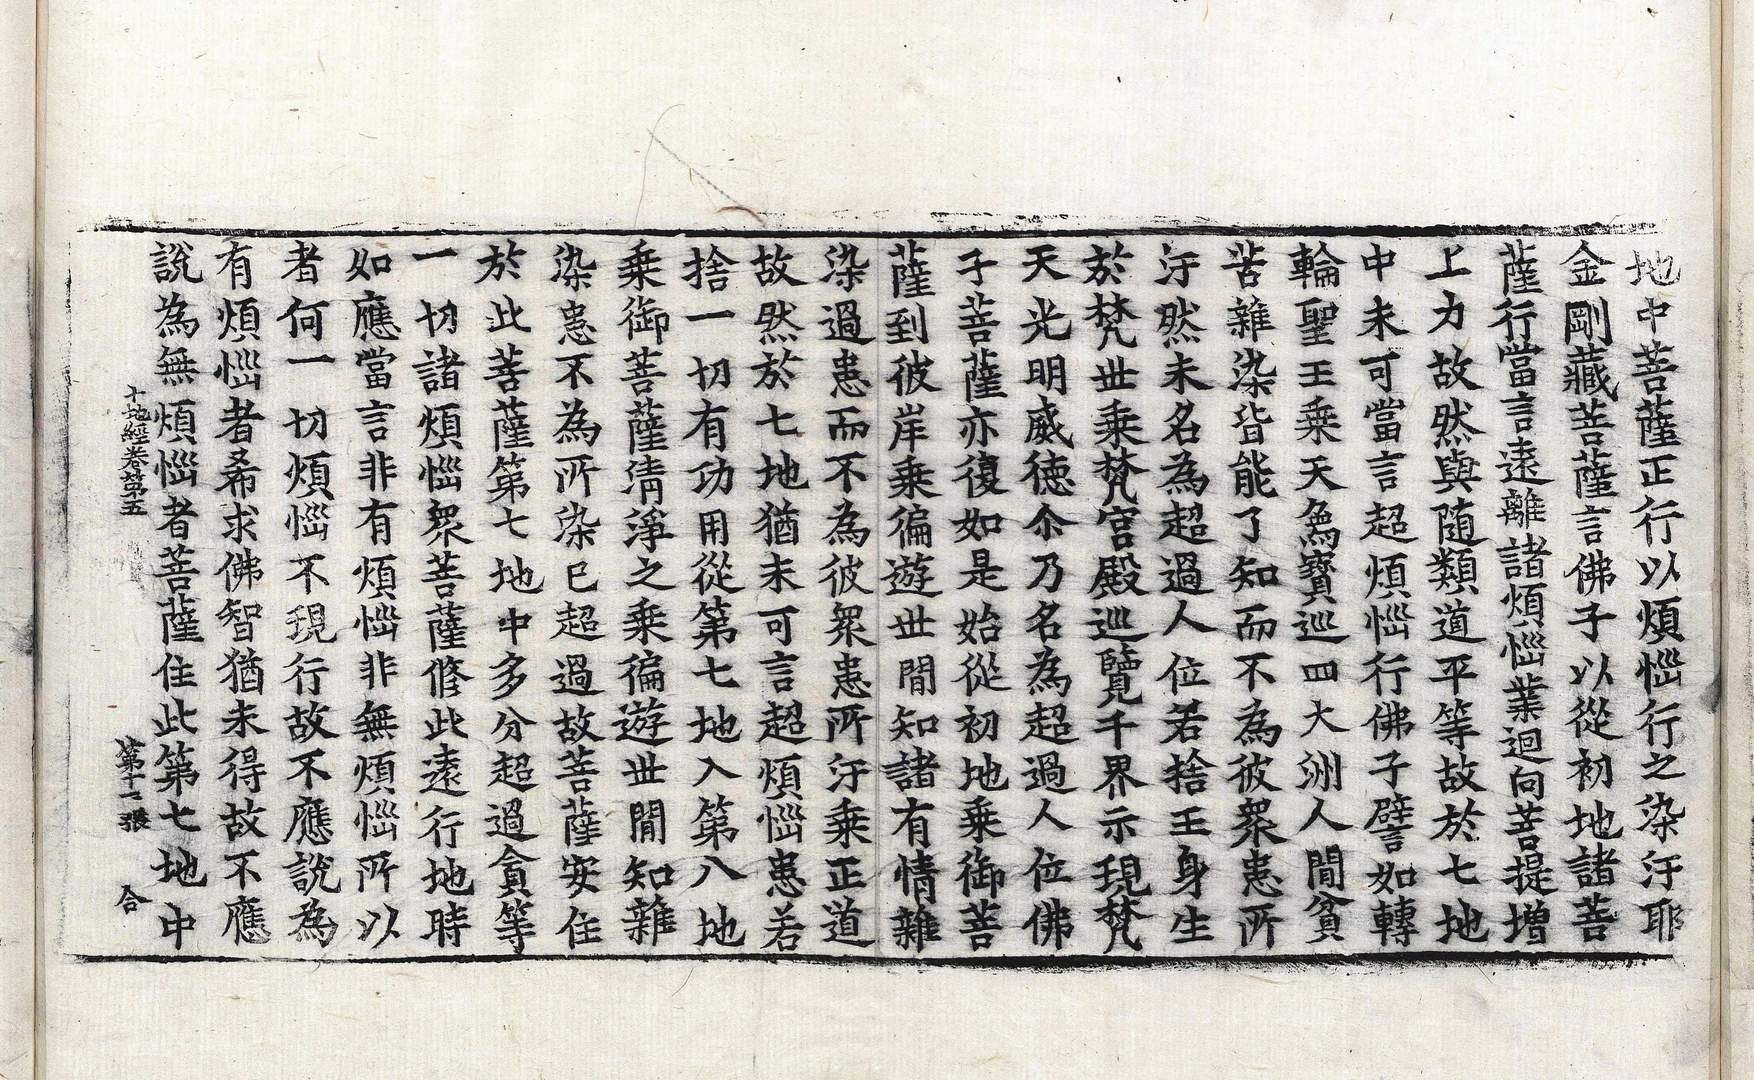 地中菩薩正行以煩惱行之染汙耶
金剛藏菩薩言佛子以從初地諸菩
薩行當言遠離諸煩惱業迴向菩提增
上力故然與随類道平等故於七地
中未可當言超煩惱行佛子譬如轉
輪聖王乗天爲寶巡四大洲人間貧
苦雜染皆能了知而不為彼衆恚所
汙然未名為超過人位若捨王身生
於梵世乗梵宫殿巡覽千界示現梵
天光明威德尒乃名為超過人位佛
子菩薩亦復如是始從初地乗御菩
薩到彼岸乗徧遊世間知諸有情雜
染過恚而不為彼衆恚所汙乗正道
故然於七地猶未可言超煩惱恚若
捨一切有功用從第七地入第八地
乗御菩薩清淨之乗徧遊世間知雜
染恚不為所染已超過故菩薩安住
於此菩薩第七地中多分超過貪等
一切諸煩惱衆菩薩修此遠行地時
如應當言非有煩惱非無煩惱所以
者何一切煩惱不現行故不應說為
有煩惱者希求佛智猶未得故不應
說為無煩惱者菩薩住此第七地中
十地經卷第五　第十一張　合